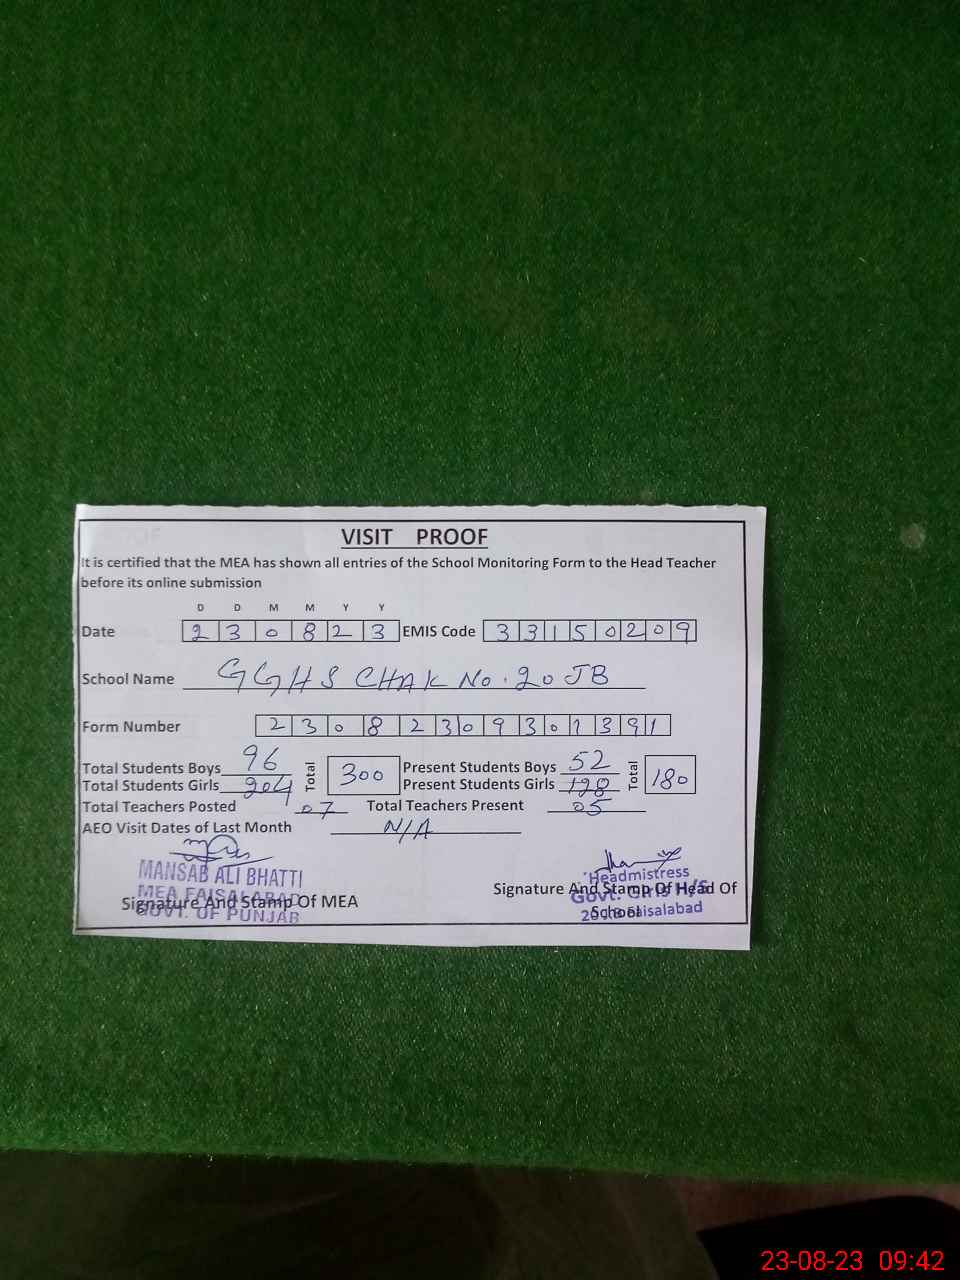 VISIT PROOF
It is certified that the MEA has shown all entries of the School Monitoring Form to the Head Teacher
before its online submission
D D M M Y Y
Date 2 3 0 8 2 3 EMIS Code 3 3 1 5 0 2 0 9
School Name GGHS CHAK No. 20 JB
Form Number 2 3 0 8 2 3 0 9 3 0 1 3 9 1
Total Students Boys 96 Total 300 Present Students Boys 52 Total 180
Total Students Girls 204 Present Students Girls 128
Total Teachers Posted 07 Total Teachers Present 05
AEO Visit Dates of Last Month N/A
MANSAB ALI BHATTI
MEA FAISALABAD
GOVT. OF PUNJAB
Signature And Stamp Of MEA
Headmistress
Govt. Girls H/S
Faisalabad
Signature And Stamp Of Head Of
School
23-08-23 09:42